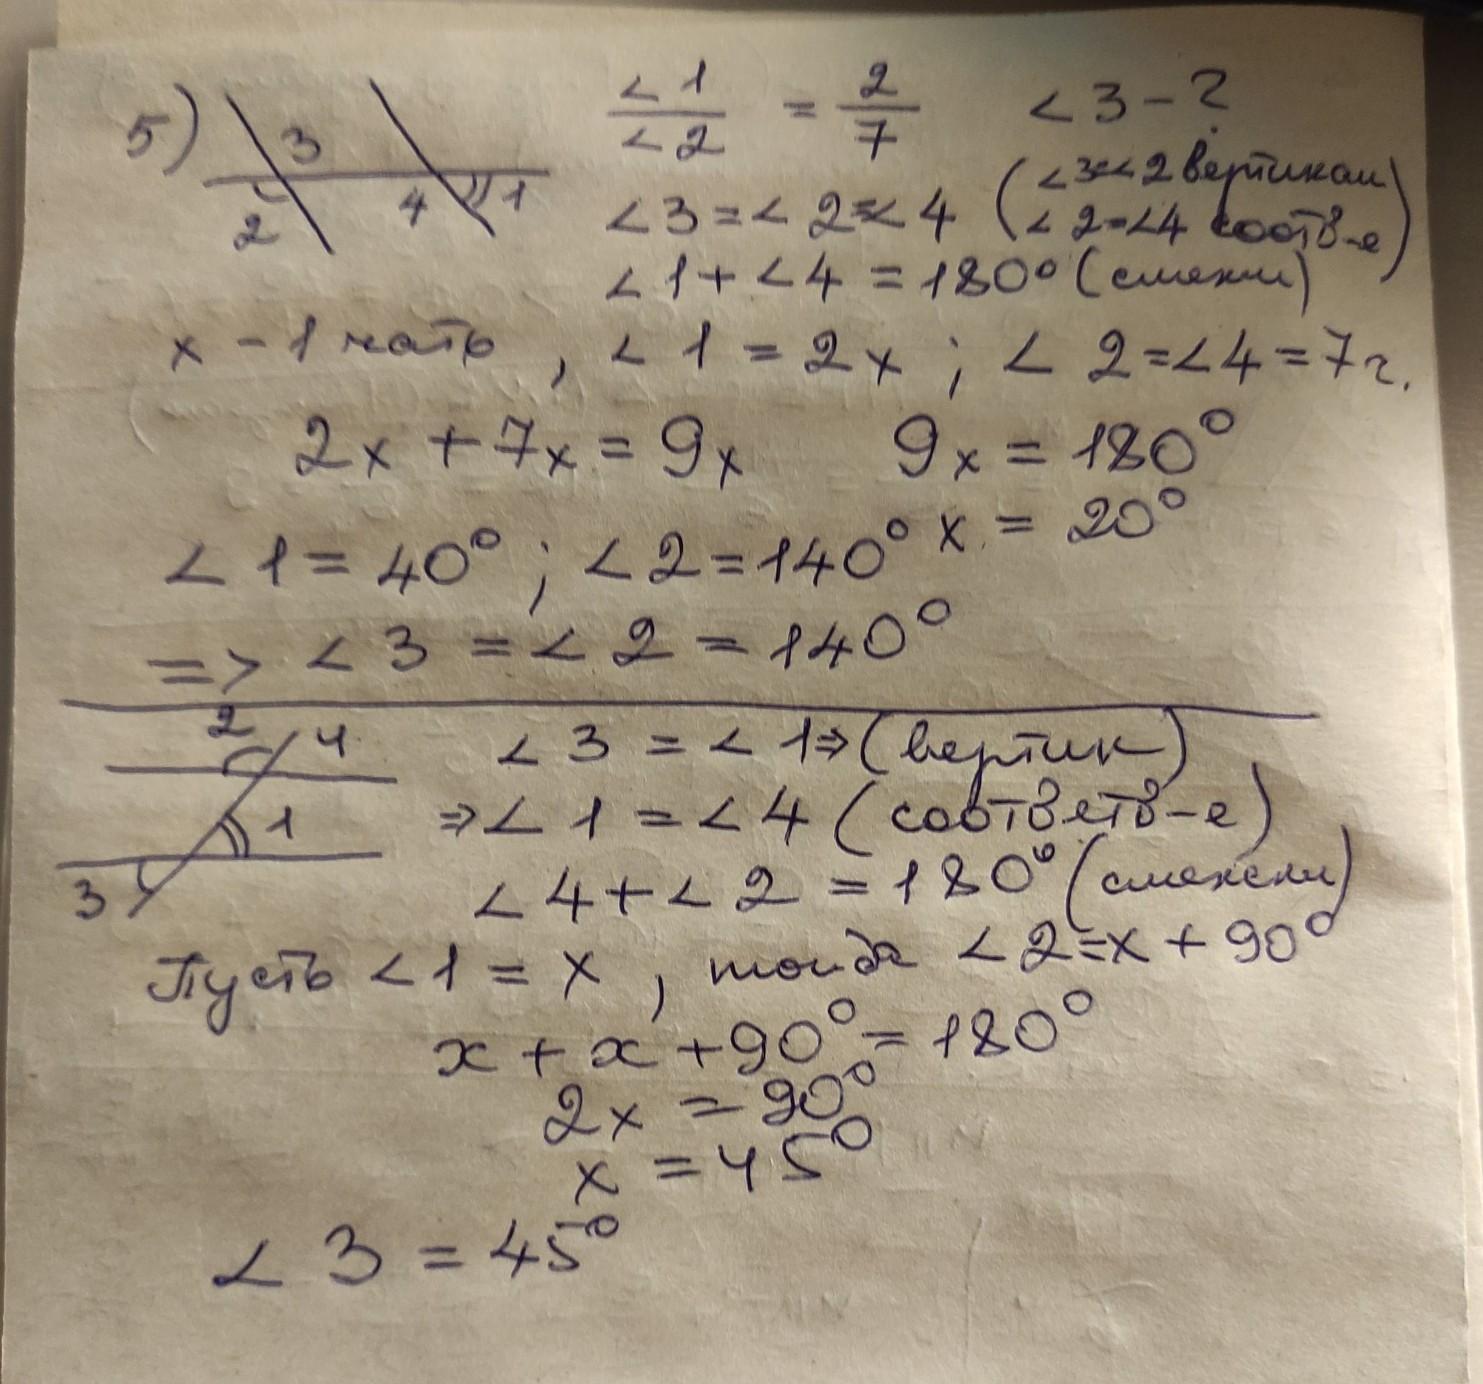 5) 3 2 4 1 <1/<2 = 2/7 <3 - ?
<3 = <2 = <4 (<3=<2 вертикал <2=<4 соотв-е)
<1 + <4 = 180° (смежн)
x - 1 часть, <1 = 2x; <2 = <4 = 7x.
2x + 7x = 9x 9x = 180°
x = 20°
<1 = 40°; <2 = 140°
=> <3 = <2 = 140°
2 4 1 3 <3 = <1 => (вертик)
=> <1 = <4 (соответв-е)
<4 + <2 = 180° (смежн)
Пусть <1 = x, тогда <2 = x + 90°
x + x + 90° = 180°
2x = 90°
x = 45°
<3 = 45°